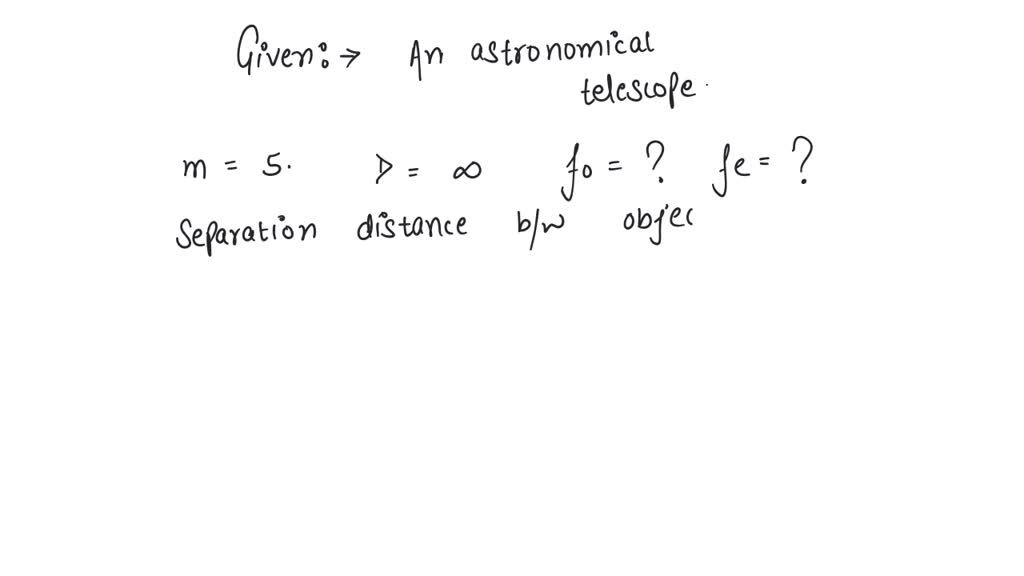 Given:→ An astronomical
telescope.
m = 5. D = ∞ fo = ? fe = ?
Separation distance b/w objec